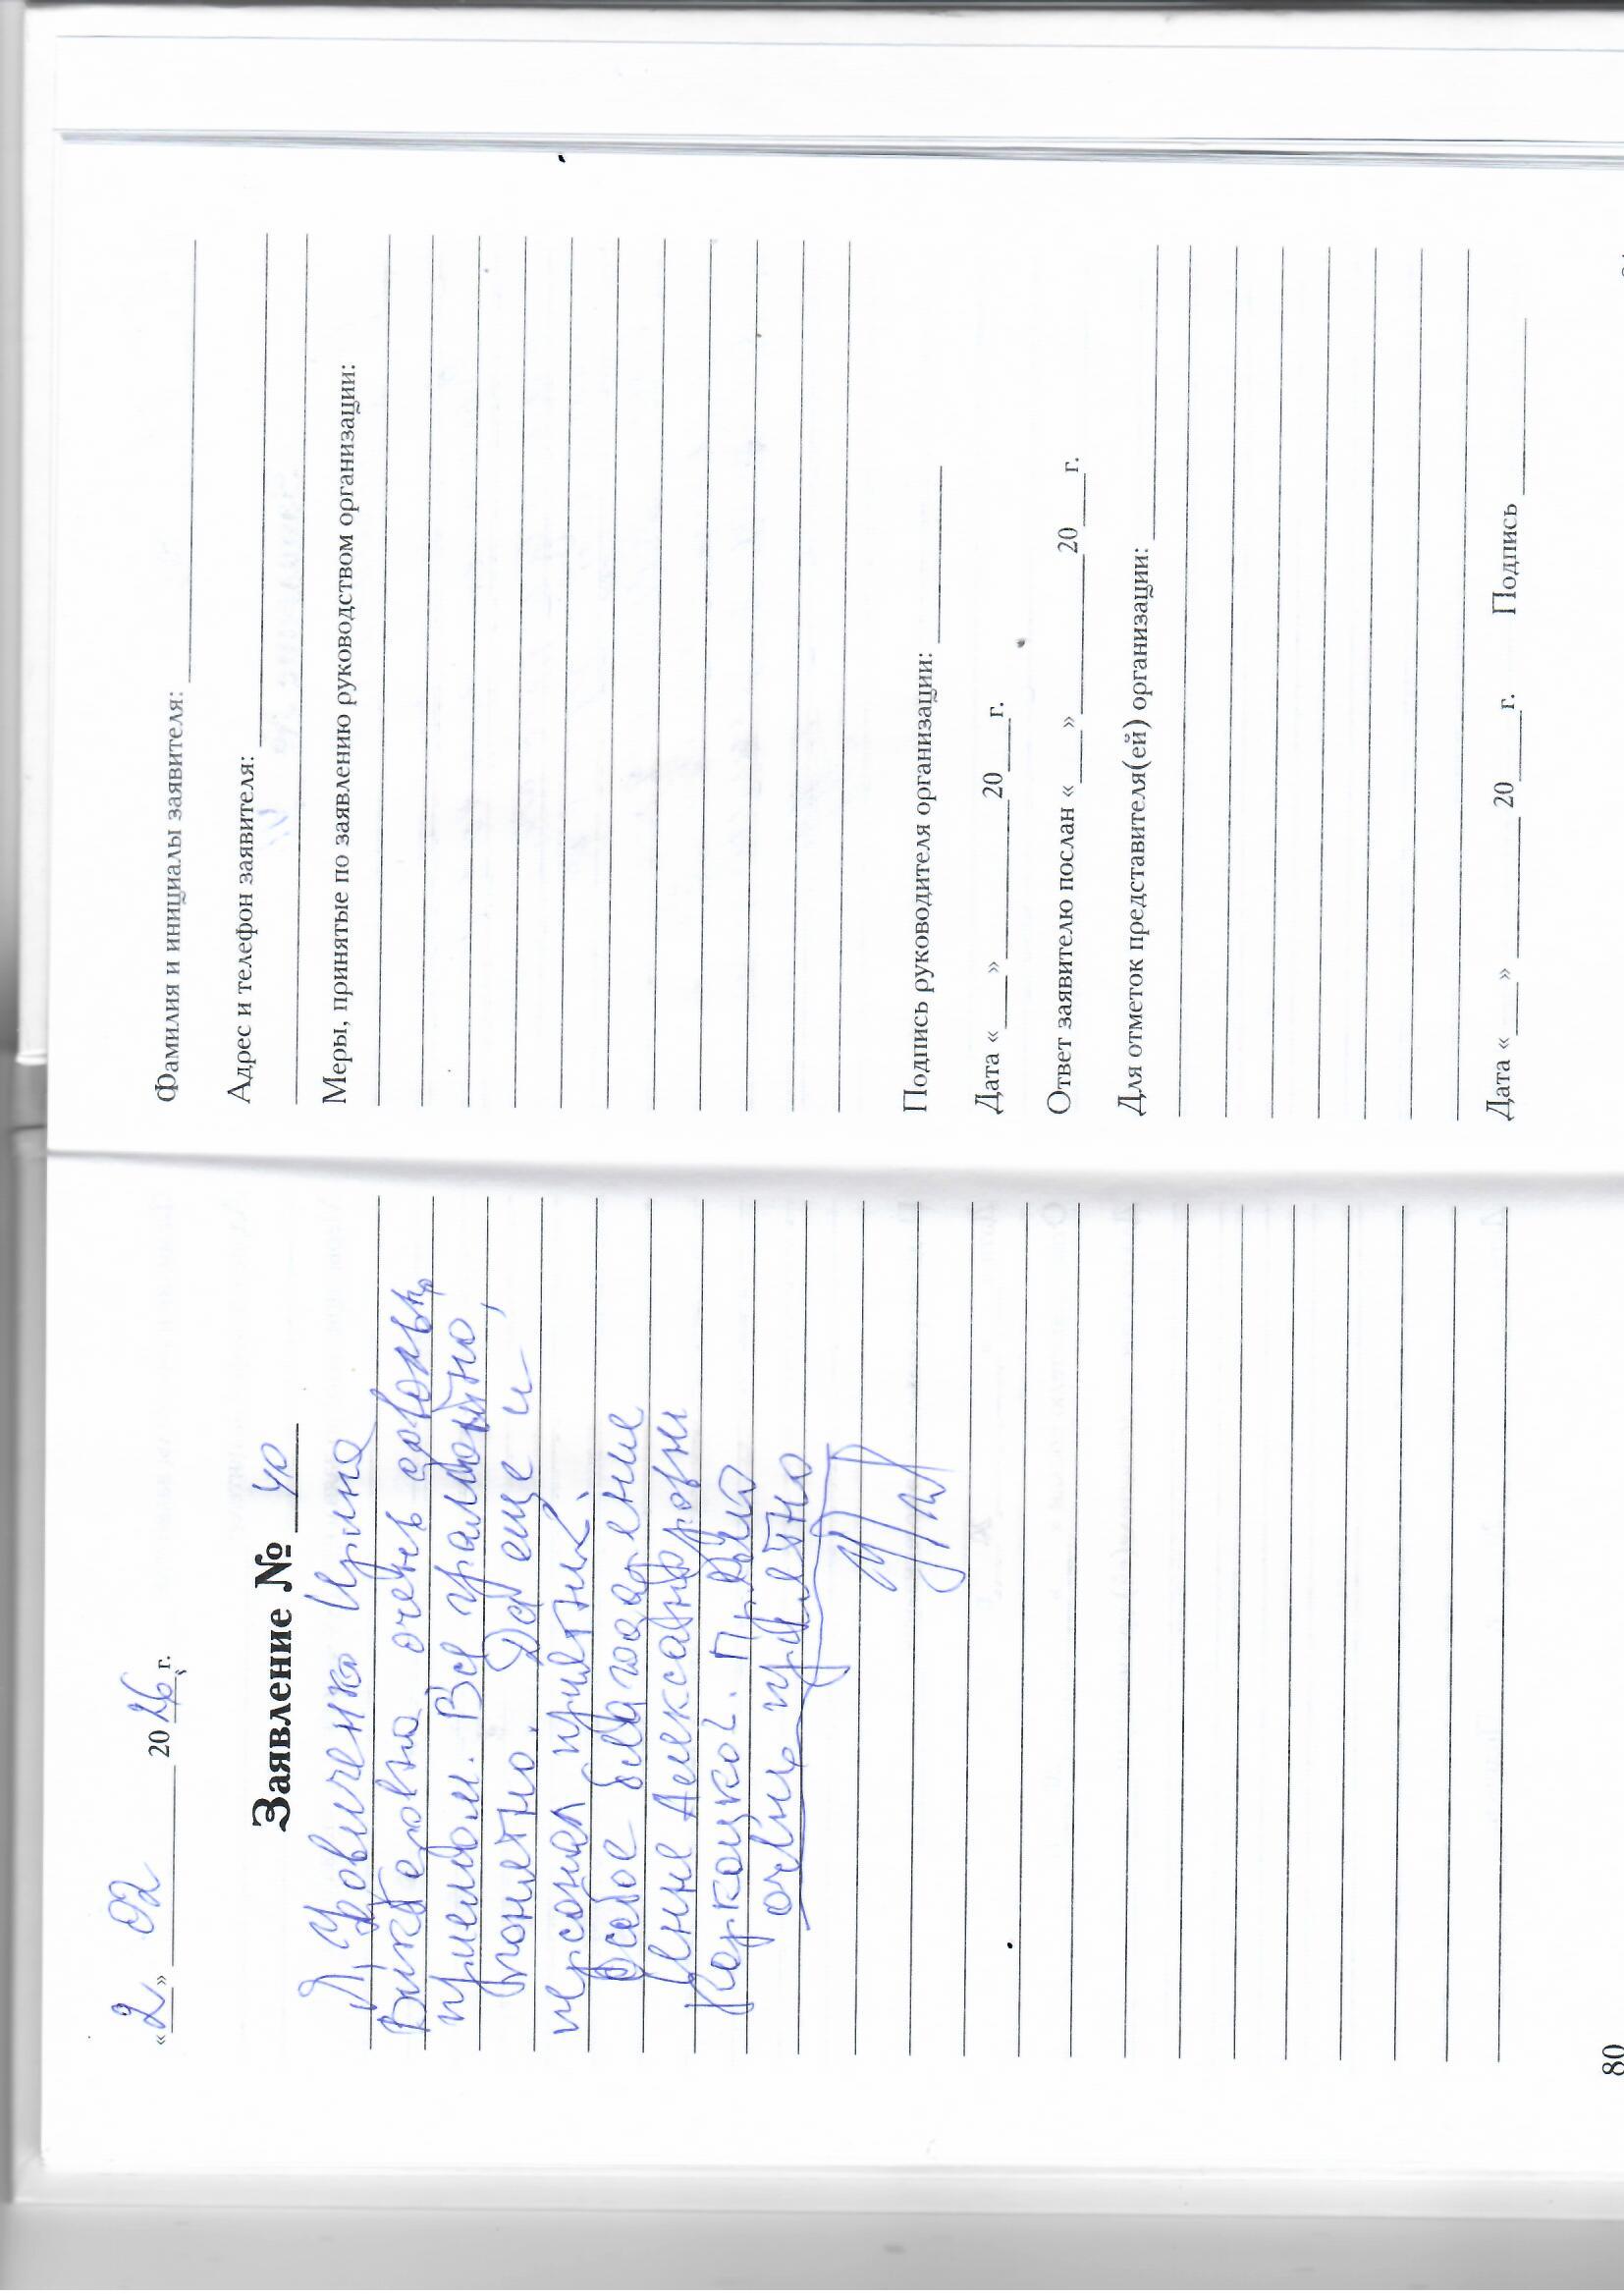 « 2 » 02 20 26 г.
Заявление № 40
Я, Яровиченко Ирина
Викторовна очень довольна
приемом. Все грамотно,
понятно. Да еще и
персонал приятный.
Особое благодарение
Яне Александровне
Каркоцкой.
очень приятно
80
Фамилия и инициалы заявителя:
Адрес и телефон заявителя:
Меры, принятые по заявлению руководством организации:
Подпись руководителя организации:
Дата «___» ___ 20___г.
Ответ заявителю послан «___» ___ 20___ г.
Для отметок представителя(ей) организации:
Дата «___» ___ 20___ г. Подпись